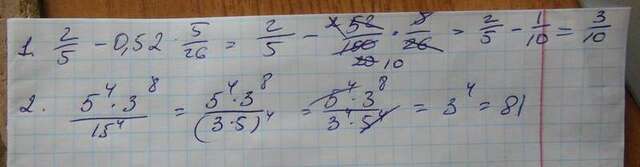 1. 2/5 - 0,52 · 5/26 = 2/5 - 52/100 · 5/26 = 2/5 - 1/10 = 3/10
2. 5⁴ · 3⁸ / 15⁴ = 5⁴ · 3⁸ / (3·5)⁴ = 5⁴ · 3⁸ / 3⁴ · 5⁴ = 3⁴ = 81